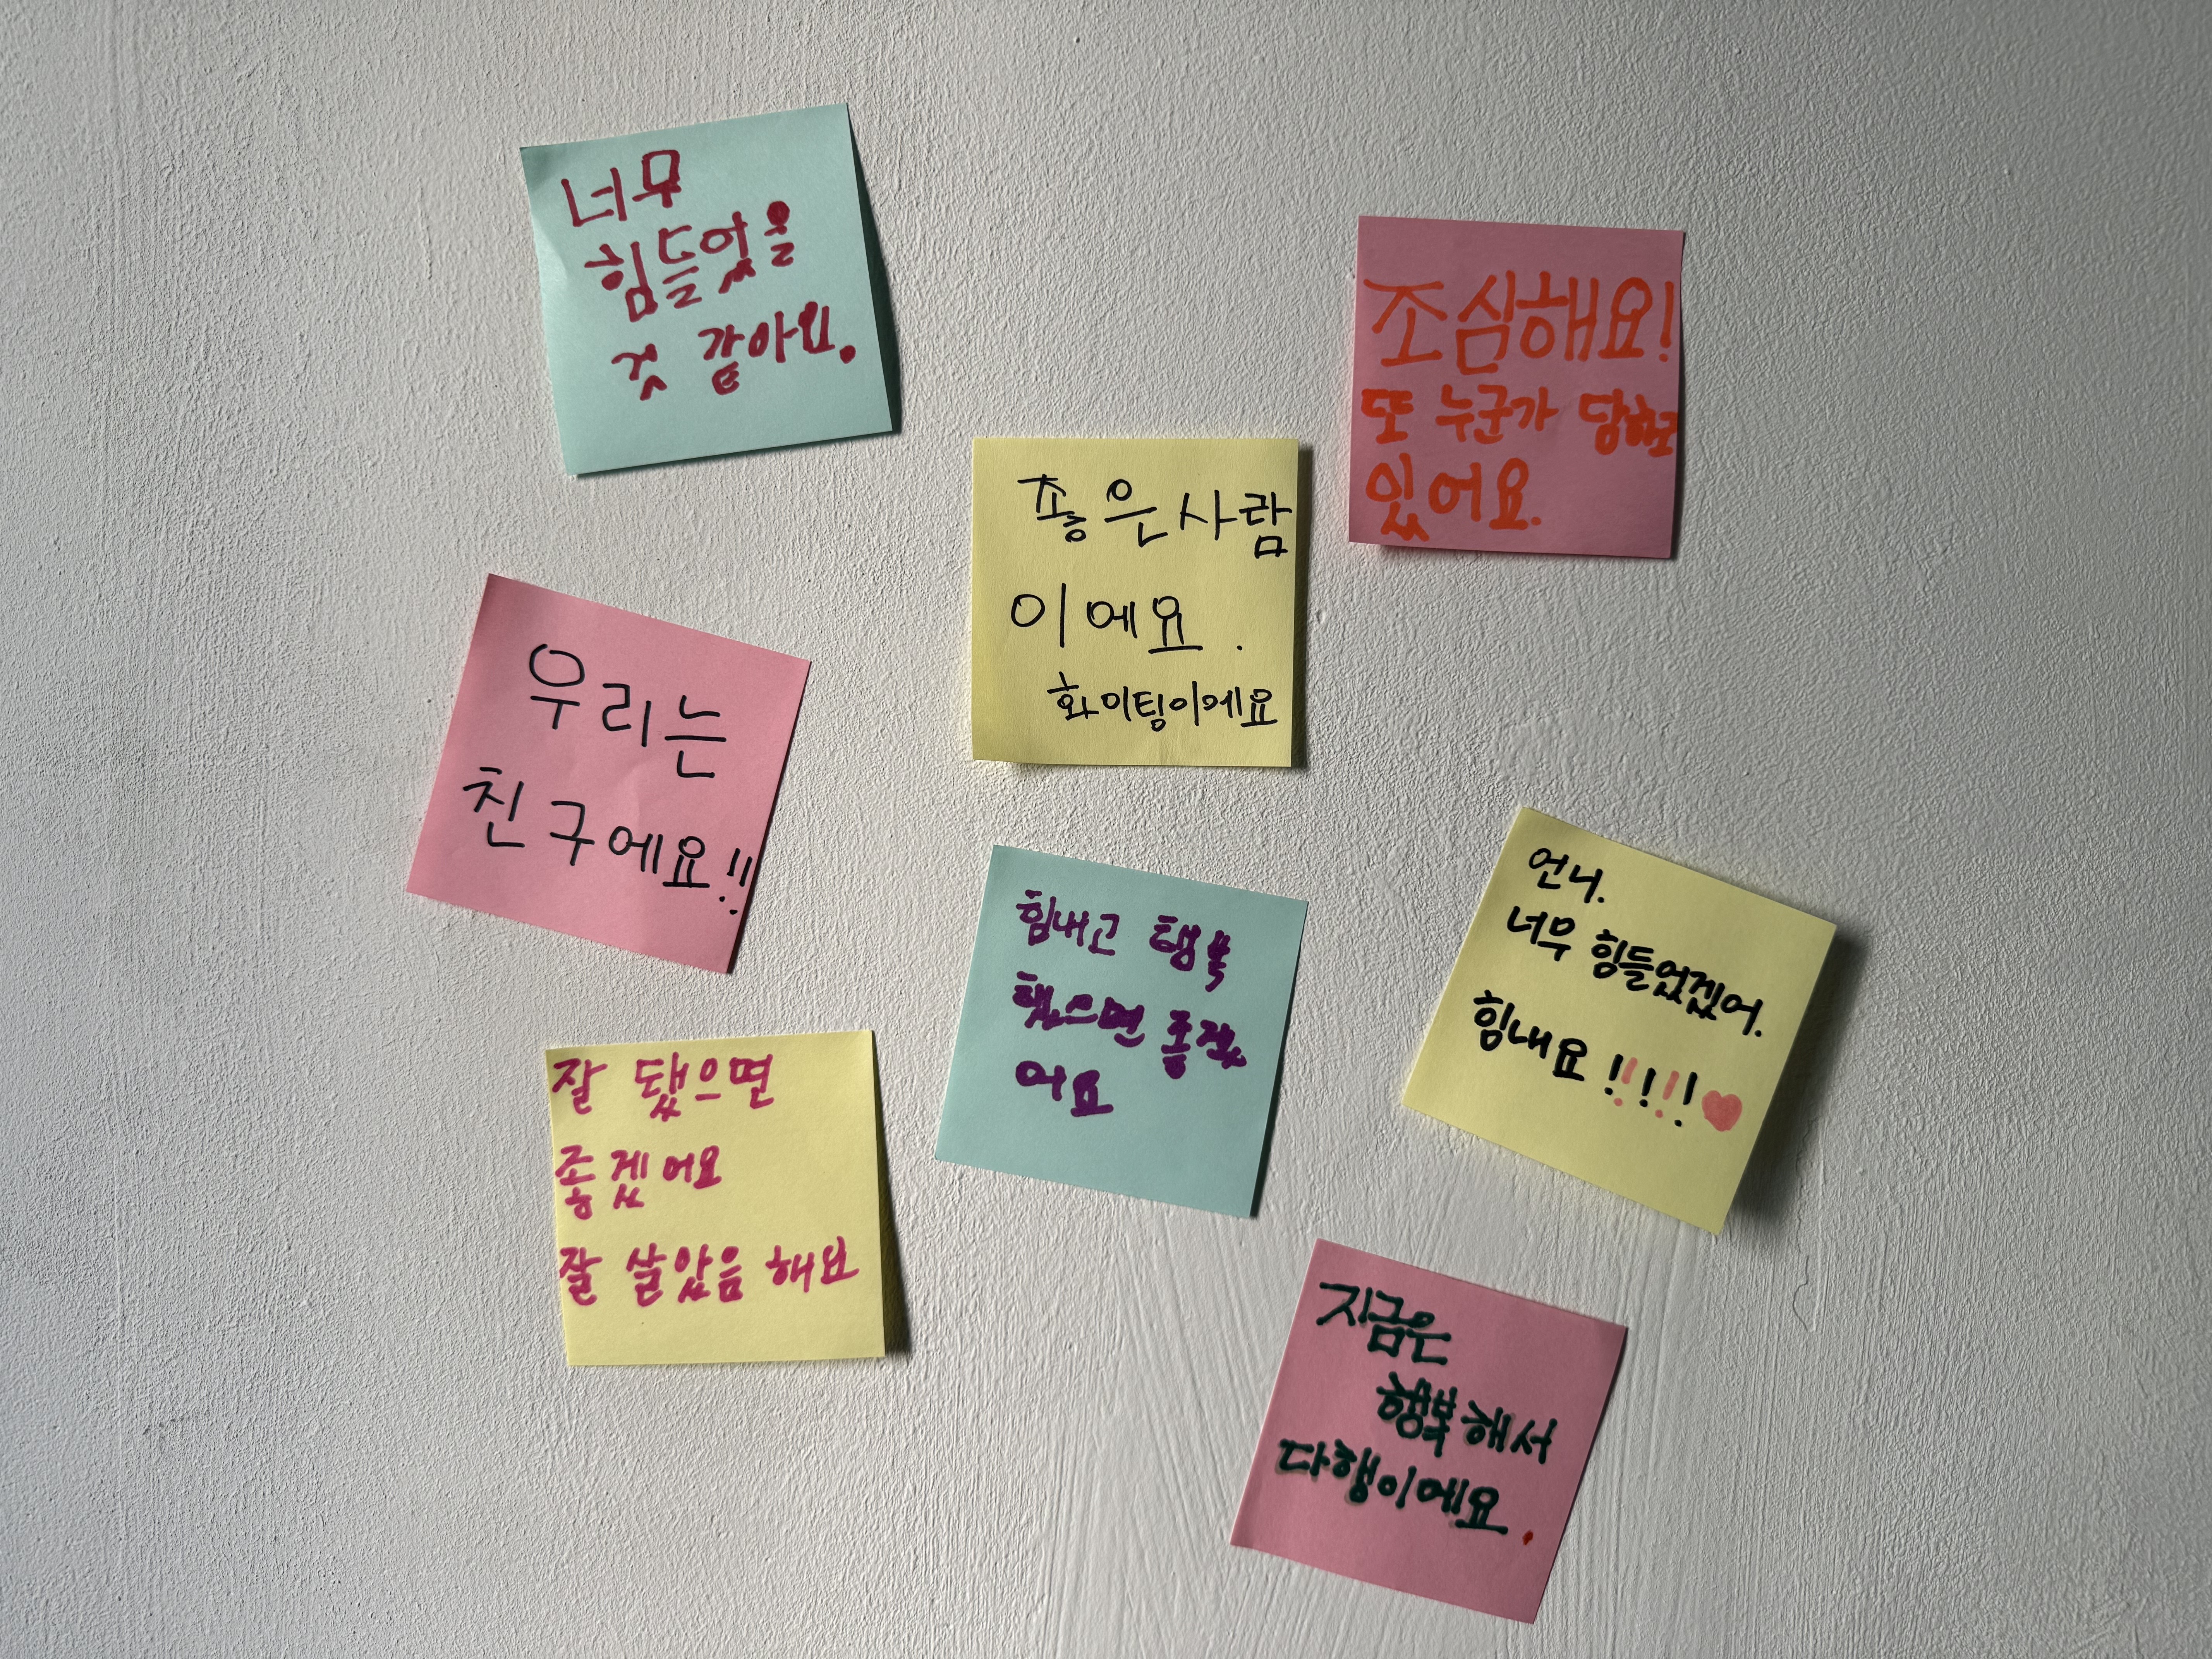 너무
힘들었을
것 같아요.
조심해요!
또 누군가 당하고
있어요.
좋은사람
이에요.
화이팅이에요
우리는
친구에요!!
언니.
너무 힘들었겠어.
힘내요!!!!!♥
힘내고 행복
했으면 좋겠
어요
잘 됐으면
좋겠어요
잘 살았음 해요
지금은
행복해서
다행이에요.